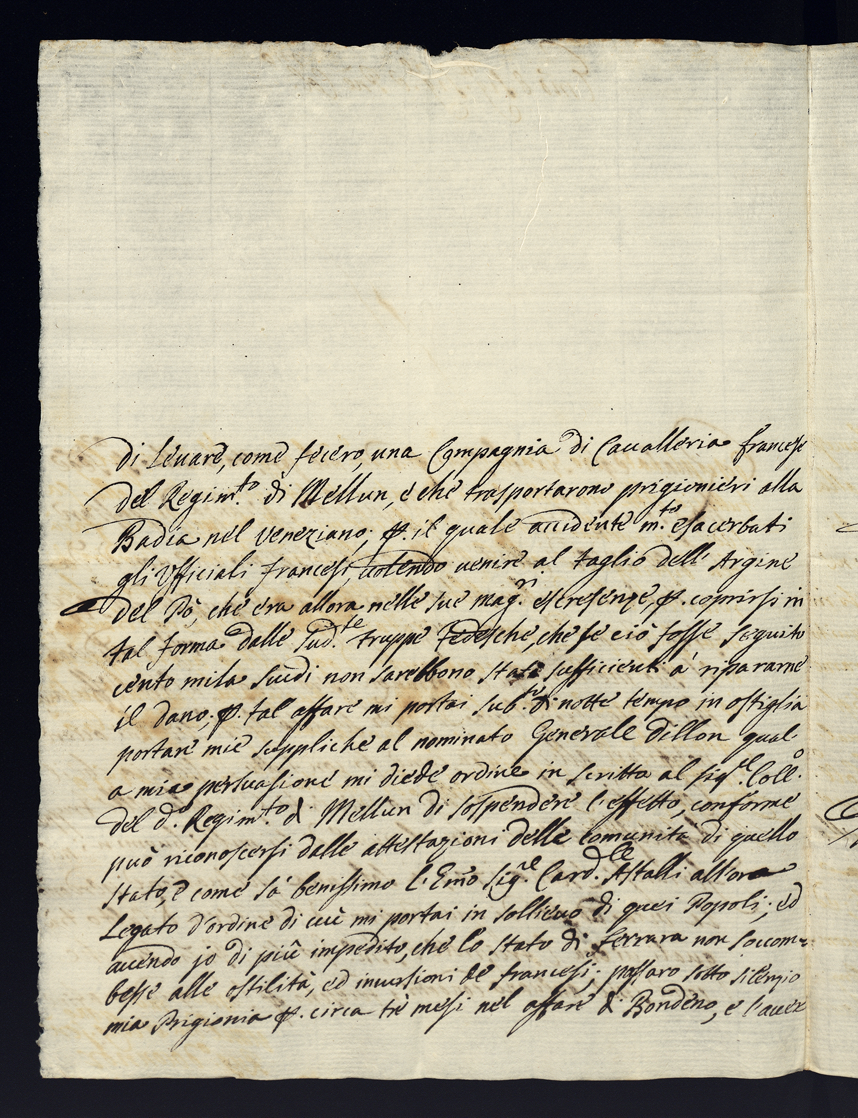 di Levare, come fecero, una Compagnia di Cavalleria francese
del Regim.to di Mellun, e che trasportarono prigionieri alla
Badia nel Veneziano; p. il quale accidente m.to esacerbati
gli Ufficiali francesi volendo venire al taglio dell'Argine
del Pò, che era allora nelle sue mag.ri escresenze, p. coprirsi in
tal forma dalle sud.te truppe Tedesche, che se ciò fosse seguito
cento mila scudi non sarebbono stati sufficienti à ripararne
il dano, p. tal affare mi portai sub.to di notte tempo in ostiglia
portare mie suppliche al nominato Generale Dillon qual
a mia persuasione mi diede ordine in scritto al sig.re Coll.o
del d.o Regim.to di Mellun di sospendere l'effetto, conforme
può riconoscersi dalle attestazioni delle comunità di quello
stato, e come sà benissimo l'Emo Sig.re Card.le Astalli allora
Legato d'ordine di cui mi portai in sollievo di quei Popoli; ed
avendo io di più impedito, che lo stato di Ferrara non soccom=
besse alle ostilità, ed incursioni de francesi; passaro sotto silenzio
mia Prigionia p. circa trè mesi nel affare di Bondeno, e l'aver